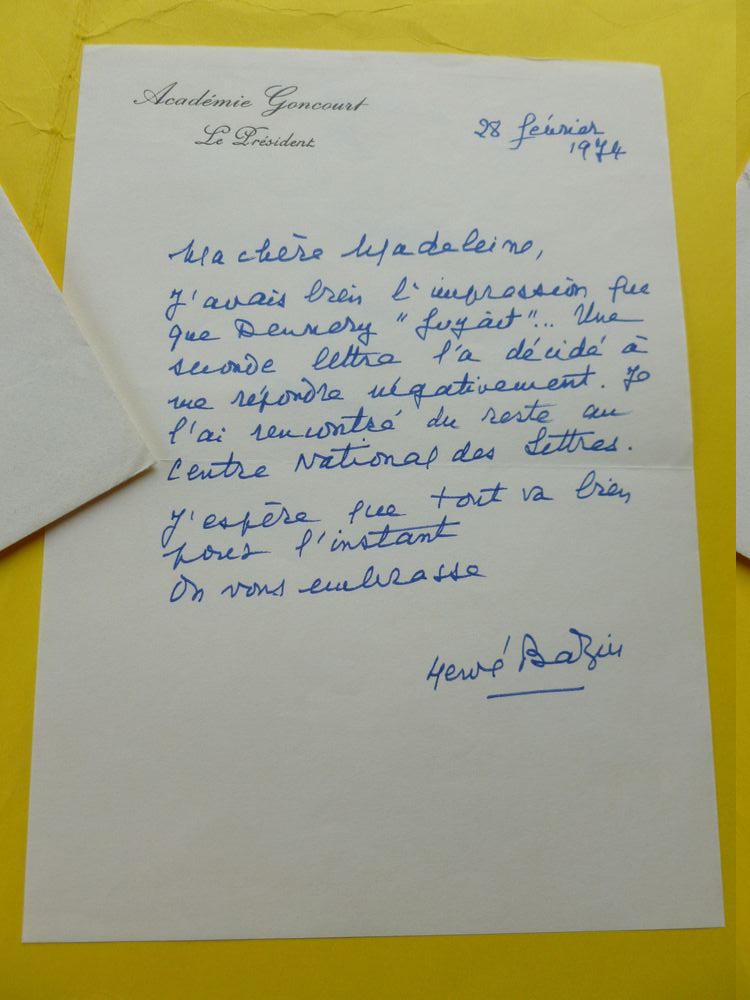 Académie Goncourt
Le Président
28 février
1974
Ma chère Madeleine,
J'avais bien l'impression que
que Dennery "fuyait"... Une
seconde lettre l'a décidé à
me répondre négativement. Je
l'ai rencontré du reste au
Centre National des Lettres.
J'espère que tout va bien
pour l'instant
On vous embrasse
Hervé Bazin